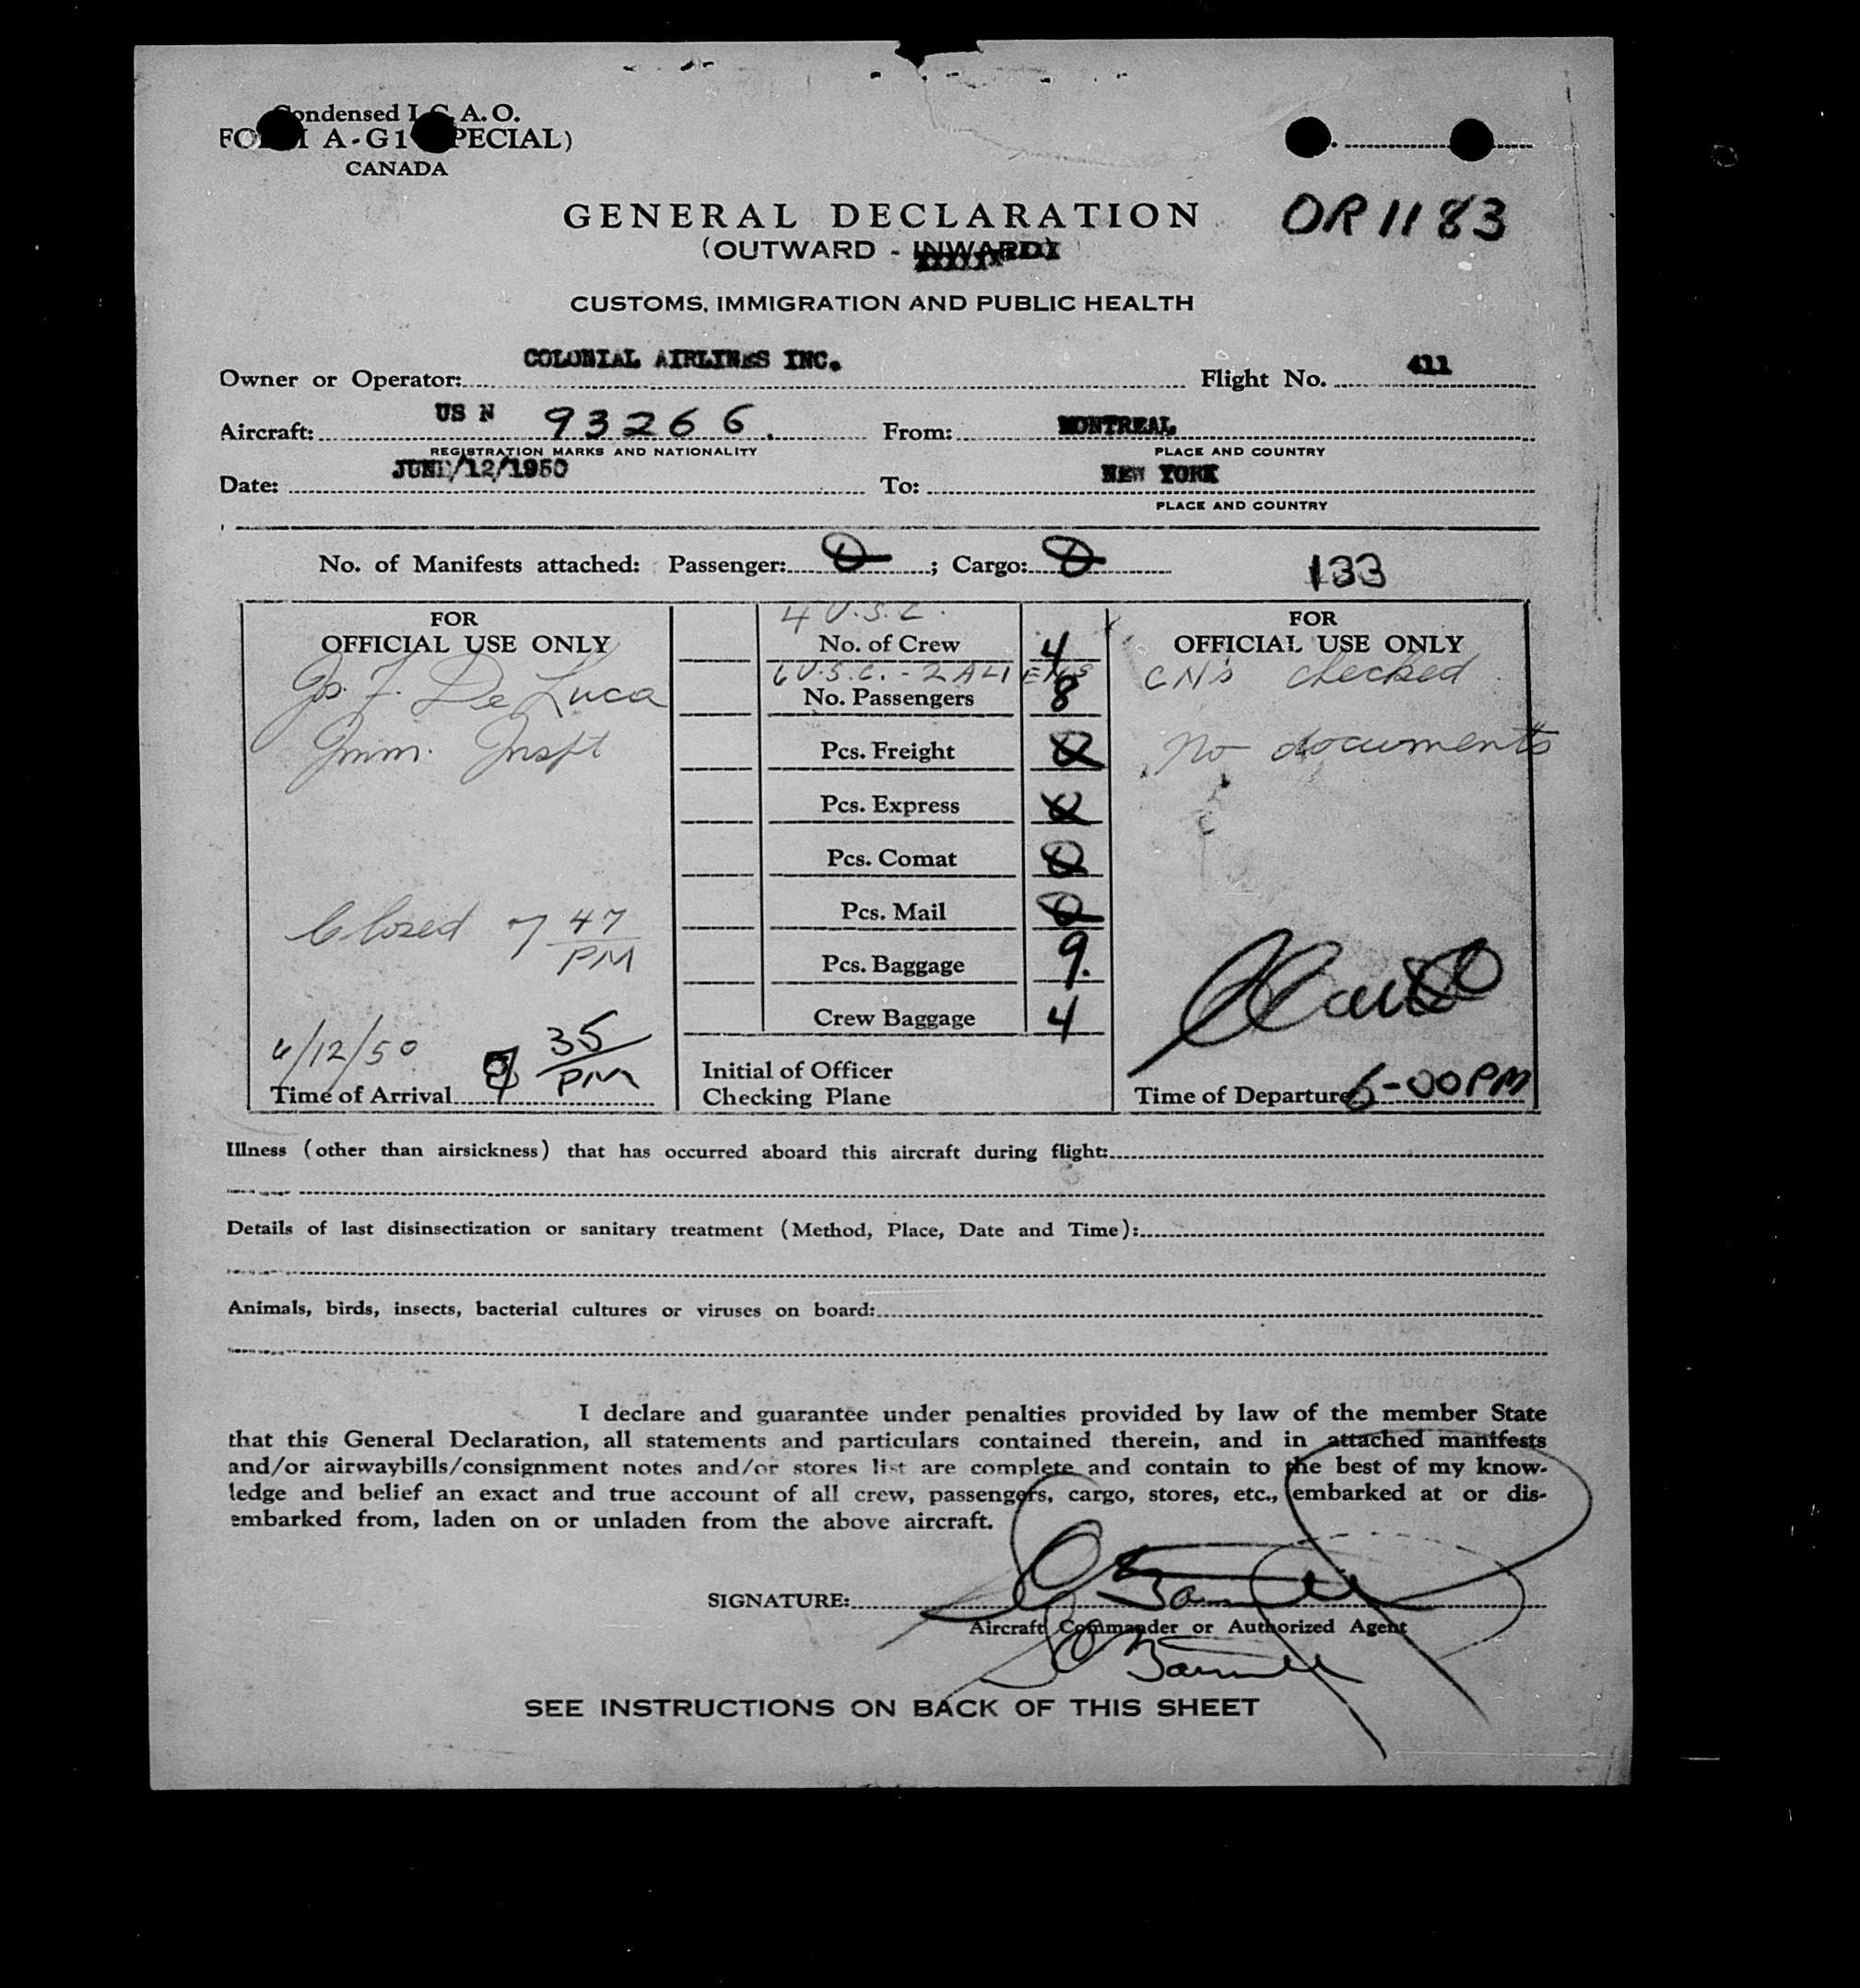 Condensed I.C.A.O.
FORM A-G1 (SPECIAL)
CANADA
GENERAL DECLARATION
OR 1183
(OUTWARD - INWARD)
CUSTOMS, IMMIGRATION AND PUBLIC HEALTH
Owner or Operator: COLONIAL AIRLINES INC. Flight No. 411
Aircraft: US N 93266. From: MONTREAL
REGISTRATION MARKS AND NATIONALITY PLACE AND COUNTRY
Date: JUNE/12/1950 To: NEW YORK
PLACE AND COUNTRY
No. of Manifests attached: Passenger: 0; Cargo: 0 133
FOR
OFFICIAL USE ONLY
Jos. F. De Luca
Imm. Inspt
Closed 7 47
PM
6/12/50 7 35
PM
Time of Arrival
4 U.S.C.
No. of Crew 4
6 U.S.C. - 2 ALIENS
No. Passengers 8
Pcs. Freight 0
Pcs. Express 0
Pcs. Comat 0
Pcs. Mail 0
Pcs. Baggage 9.
Crew Baggage 4
Initial of Officer
Checking Plane
FOR
OFFICIAL USE ONLY
CN's checked
No documents
Time of Departure 6-00PM
Illness (other than airsickness) that has occurred aboard this aircraft during flight:
Details of last disinsectization or sanitary treatment (Method, Place, Date and Time):
Animals, birds, insects, bacterial cultures or viruses on board:
I declare and guarantee under penalties provided by law of the member State
that this General Declaration, all statements and particulars contained therein, and in attached manifests
and/or airwaybills/consignment notes and/or stores list are complete and contain to the best of my know-
ledge and belief an exact and true account of all crew, passengers, cargo, stores, etc., embarked at or dis-
embarked from, laden on or unladen from the above aircraft.
SIGNATURE:
Aircraft Commander or Authorized Agent
SEE INSTRUCTIONS ON BACK OF THIS SHEET